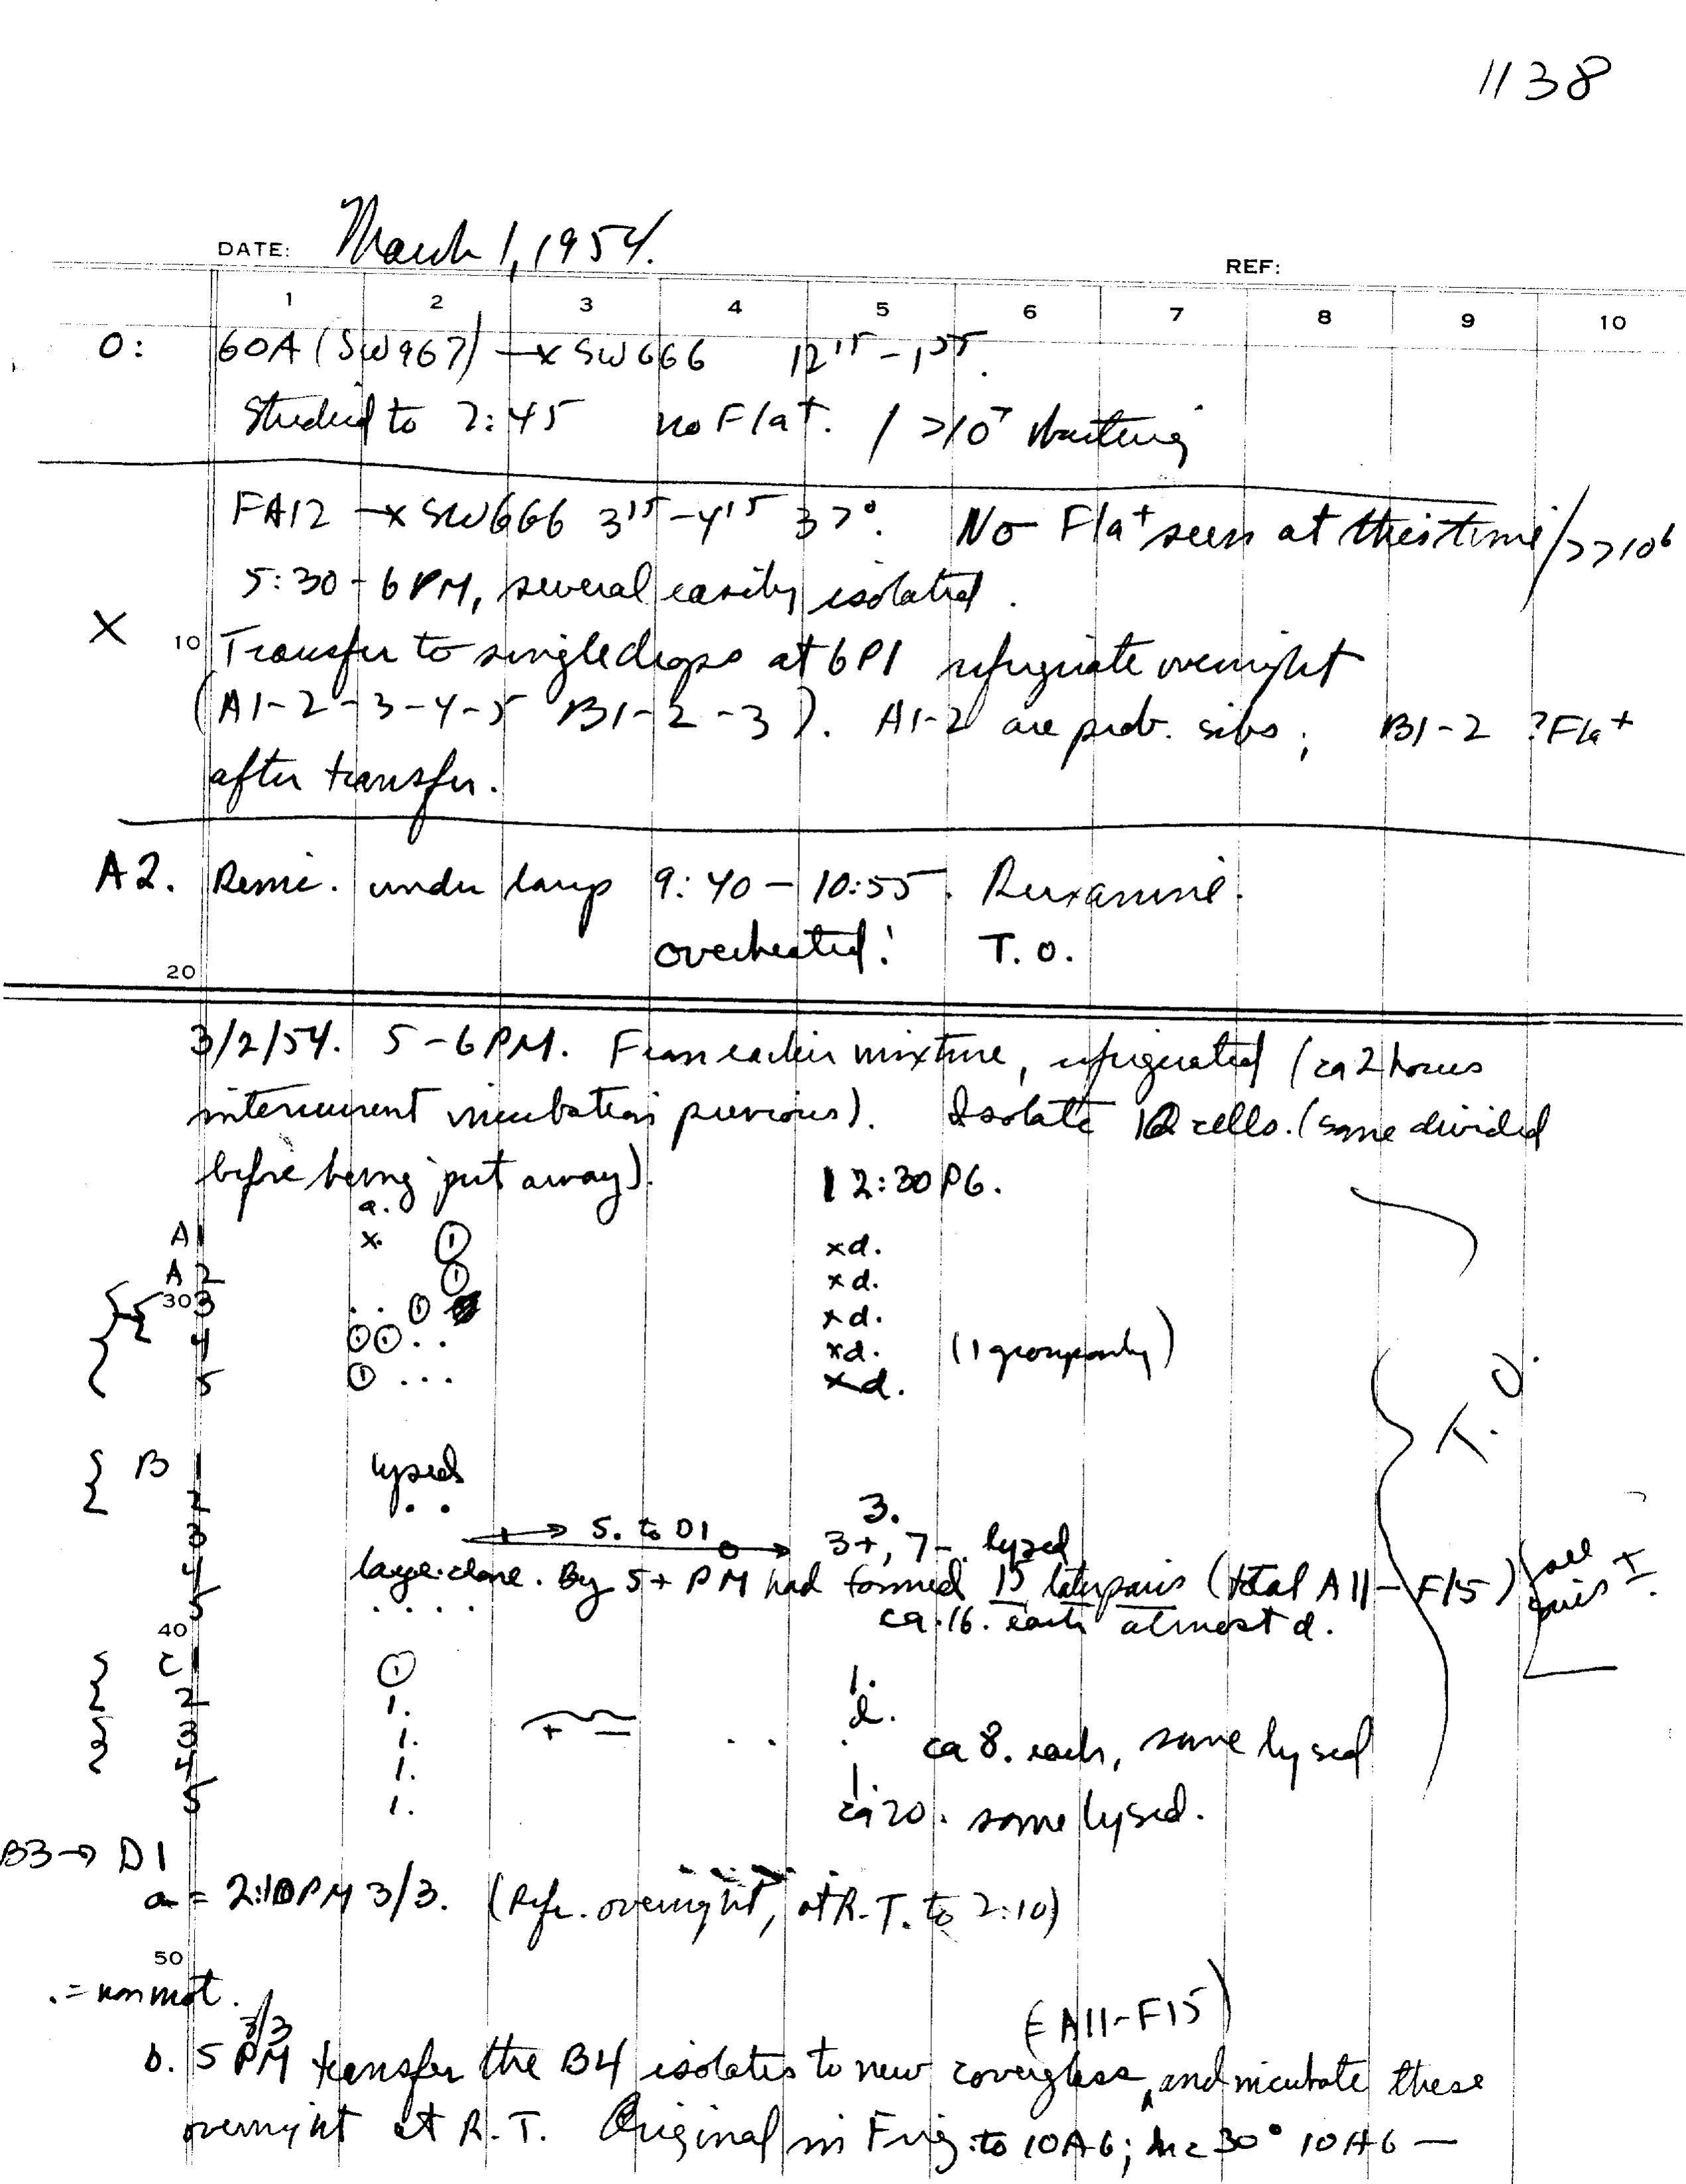 1138
DATE: March 1, 1954.
REF:
1 2 3 4 5 6 7 8 9 10
O: 60A (SW967) —x SW666 12¹⁵ - 1³⁵.
Studied to 2:45 no Fla⁺. / >10⁷
FA12 —x SW666 3¹⁵ - 4¹⁵ 37°. No Fla⁺ seen at this time / >>10⁶
5:30 - 6 PM, several easily isolated.
X 10 Transfer to single drops at 6P1 refrigerate overnight
(A1-2-3-4-5 B1-2-3). A1-2 are prob. sibs; B1-2 ?Fla⁺
after transfer.
A2. under lamp 9:40 - 10:55.
overheated! T.O.
20
3/2/54. 5-6 PM. From earlier mixture, refrigerated (ca 2 hours
intercurrent incubation previous). Isolate 12 cells. (some divided
before being put away). 12:30 P6.
a.
A1 x. ① xd.
A2 ① xd.
30 3 . . ① xd.
4 ①① . . xd. (1 group only)
5 ① . . . xd.
B 1 lysed
2 . . 3.
3 + → 5. to D1 3+, 7-. lysed
4 large clone. By 5+ PM had formed 15 (total A11 - F15) see
5 . . . . ca. 16. each almost d.
T.O.
40
C1 ① 1.
2 1. d.
3 1. + = . . . ca 8. each, some lysed
4 1. 1.
5 1. ca 20. some lysed.
B3→ D1
a = 2:10 PM 3/3. (Refr. overnight, at R.T. to 2:10)
50
. = non mot.
3/3 (A11-F15)
b. 5 PM transfer the B4 isolates to new coverglass, and incubate these
overnight at R.T. Original in Frig. to 10A6; Inc 30° 10A6 —